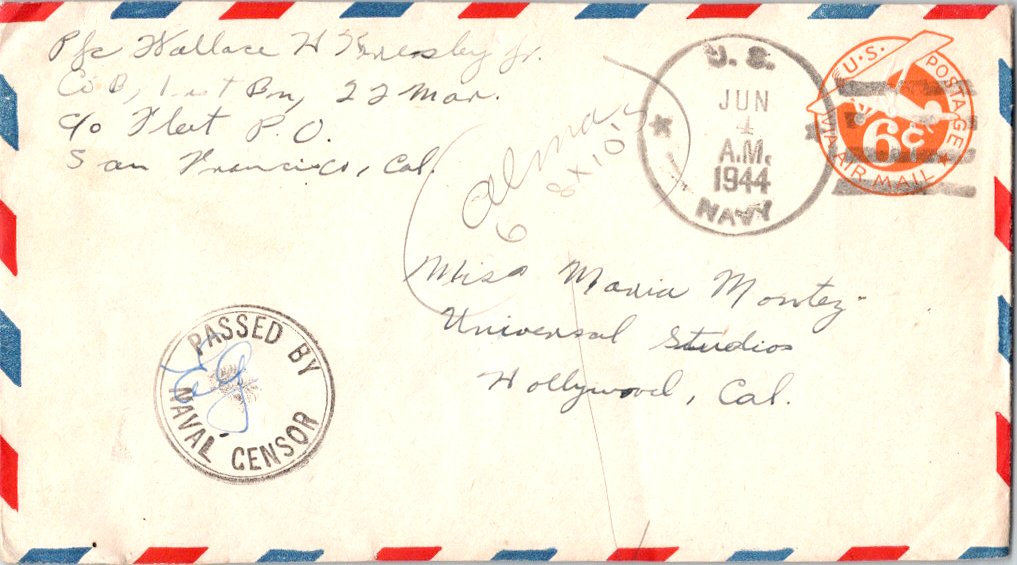 Pfc Wallace H Jr.
Co B, 1st Bn, 22 Mar.
c/o Fleet P.O.
San Francisco, Cal.
Alma
6 8x10's
U. S.
JUN
4
A.M.
1944
NAVY
U.S. POSTAGE
6¢
VIA AIR MAIL
Miss Maria Montez
Universal Studios
Hollywood, Cal.
PASSED BY
NAVAL CENSOR